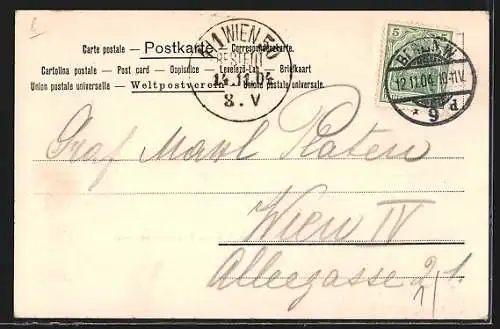 Carte postale — Postkarte — Correspondenzkarte.
Cartolina postale — Post card — Dopisnice — Levelező-Lap — Briefkaart
Union postale universelle — Weltpostverein — Unione postale universale.
WIEN 50
BESTELLT
14.11.04
8. V
5
BERLIN W.
12.11.04. 10-11V.
* 9 d
Graf Platen
Wien IV
Alleegasse